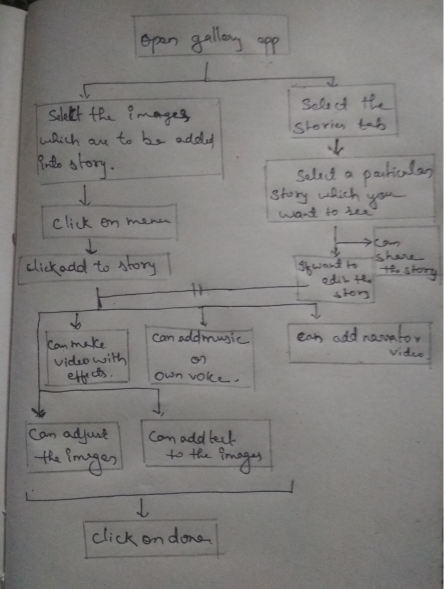 open gallery app
Select the images
which are to be added
into story.
Select the
stories tab
Select a particular
story which you
want to see
click on menu
can
share
the story
click add to story
If want to
edit the
story
can make
video with
effects.
can add music
or
own voice.
can add narrator
video
can adjust
the images
can add text
to the images
click on done